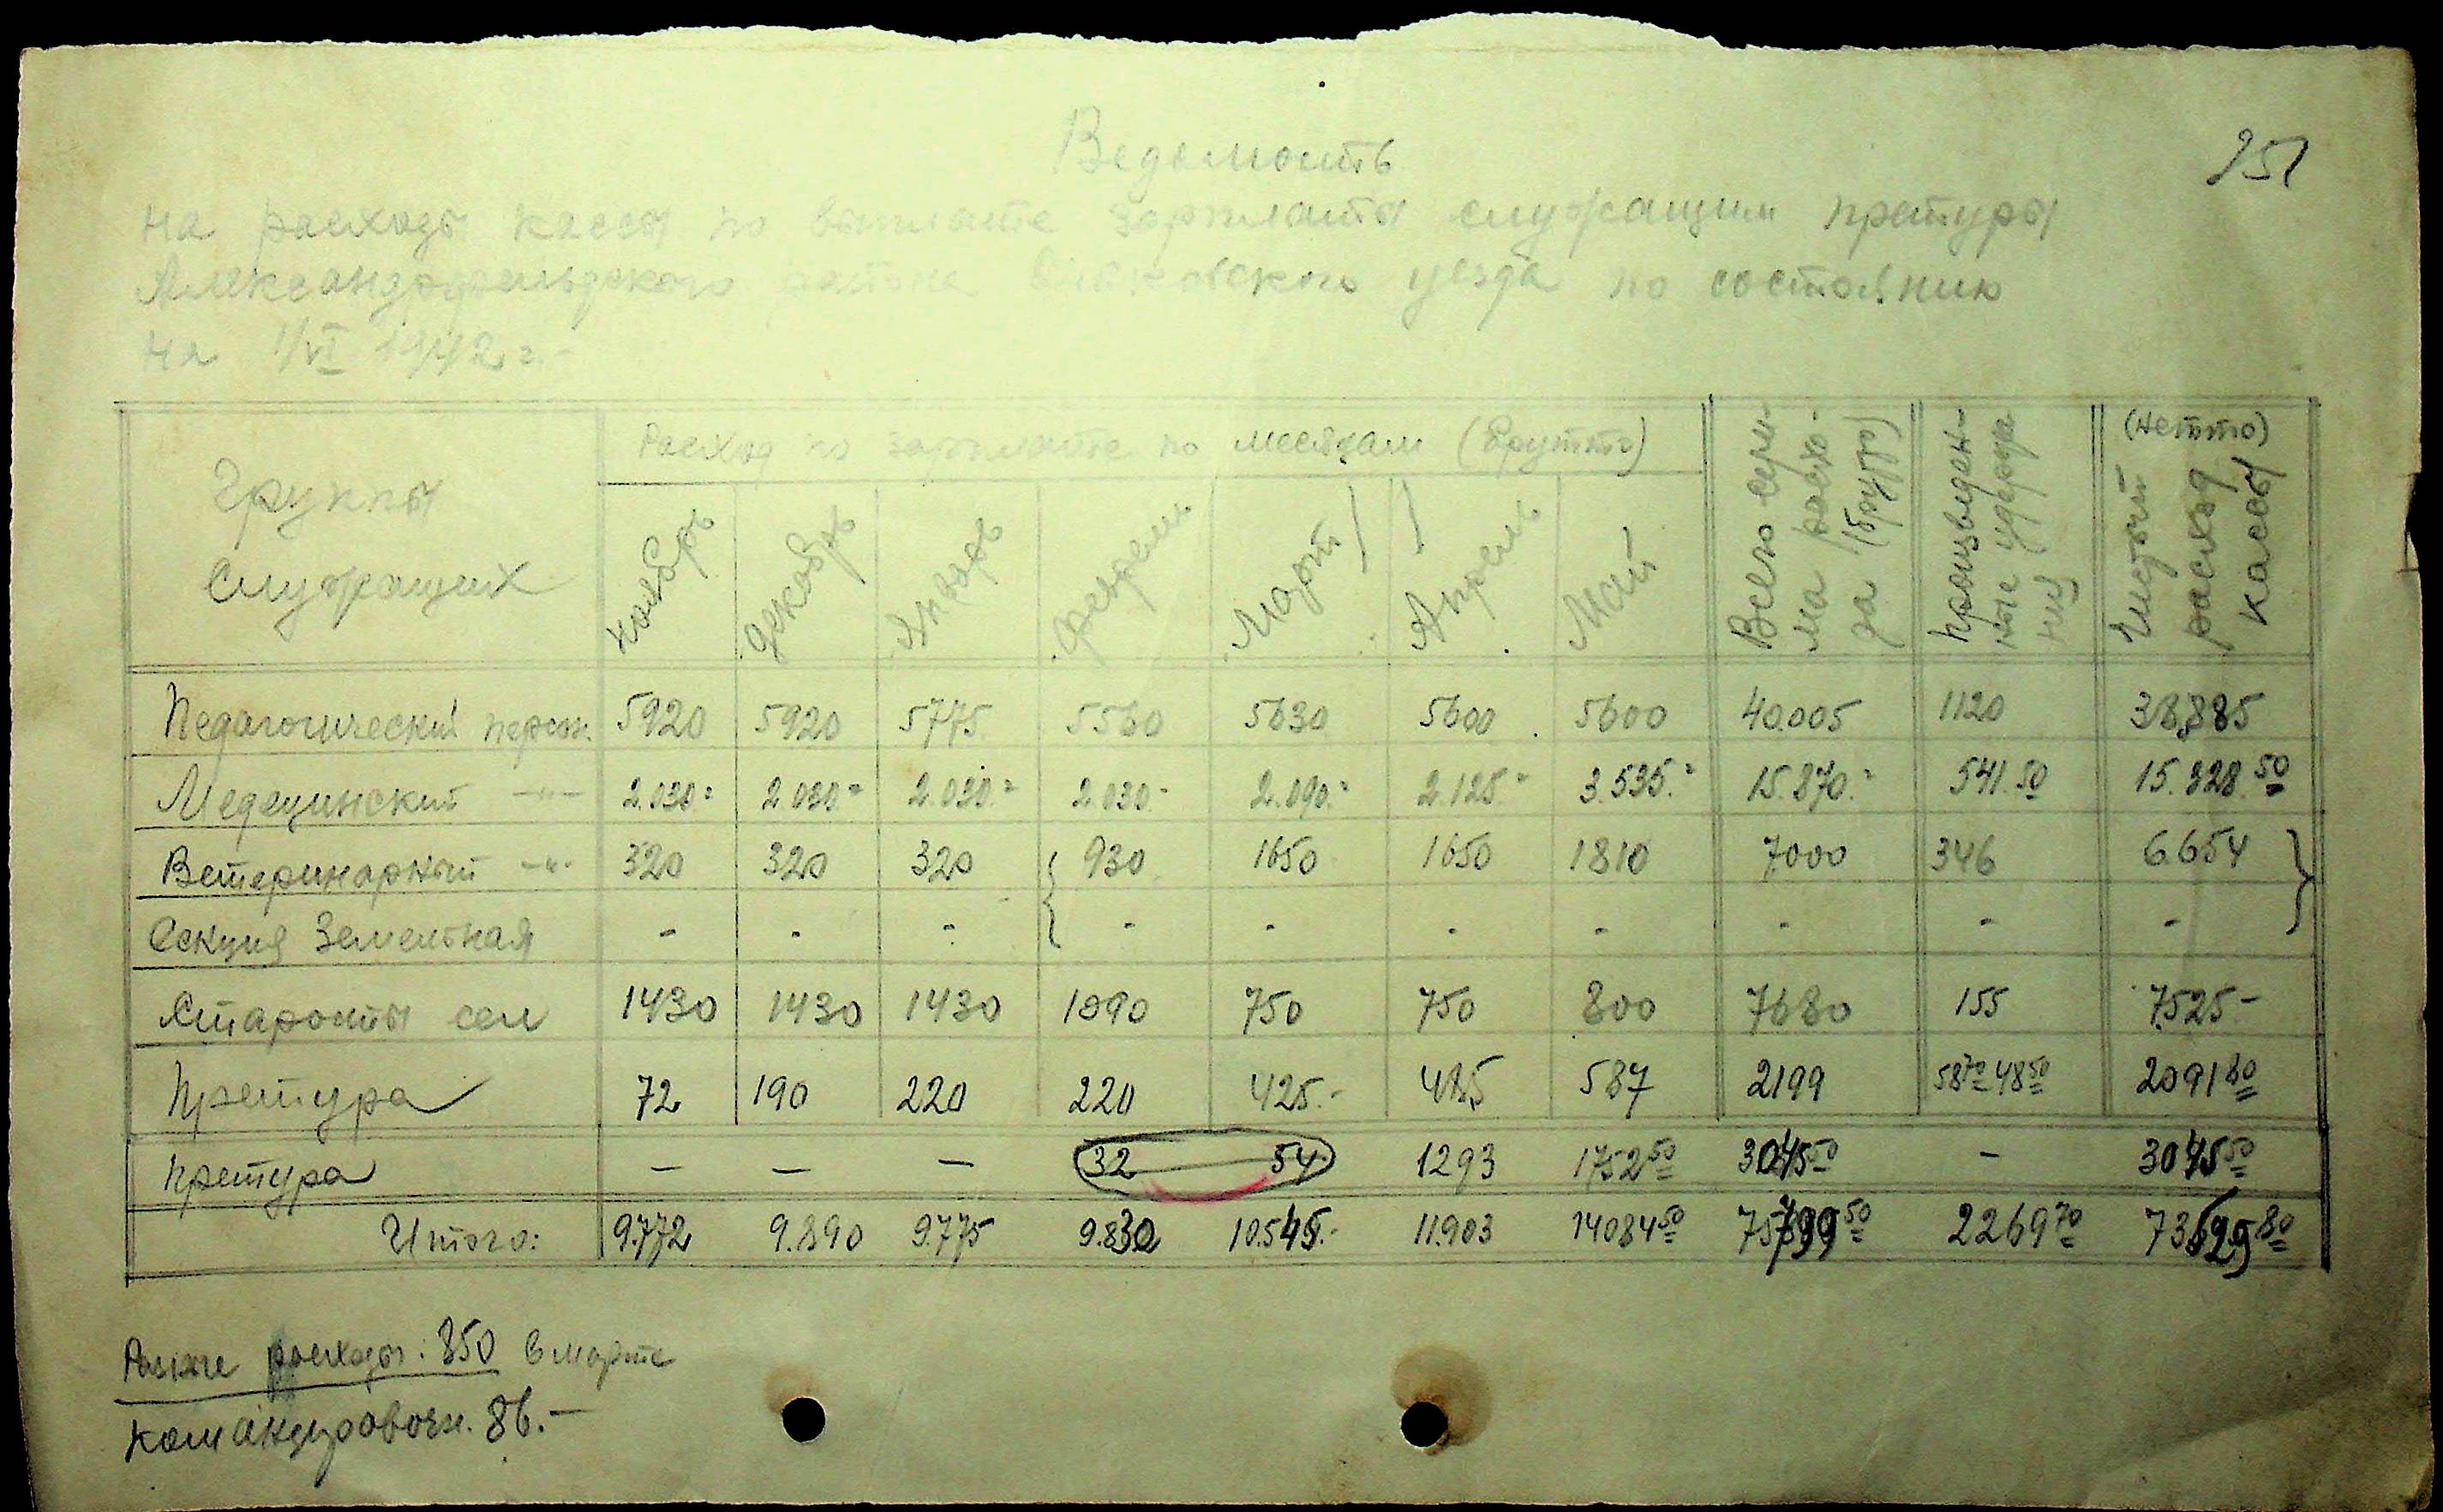 251
Ведомость
на расходы кассы по выплате зарплаты служащим претуры
Александрфельдского уезда по состоянию
на 1/VI 1942 г.-
Группы служащих
Расход по зарплате по месяцам (брутто)
ноябрь декабрь Январь февраль Март Апрель Май
Всего сумма расхода (брутто)
произведенные удержания
(нетто) Чистый расход кассы
Педагогический персон. 5920 5920 5775 5560 5630 5600 5600 40.005 1120 38,885
Медецинский -"- 2.030= 2.030= 2.030.= 2.030.- 2.090.= 2.125.= 3.535.= 15.870.= 541.50 15.328.50
Ветеринарный -"- 320 320 320 930 1650 1650 1810 7000 346 6.654
Секция Земельная - - - - - - - - - -
Старосты сел 1430 1430 1430 1090 750 750 800 7680 155 7.525-
Претура 72 190 220 220 425.- 485 587 2199 58 70 48 50 2091 80
Претура — — — 32 — 54 1293 1752 50 3045 50 - 3045 50
Итого: 9.772 9.890 9.775 9.830 10.545.- 11.903 14084 50 75799 50 2269 70 73529 80
расходы: 850 в марте
командировочн. 86.-